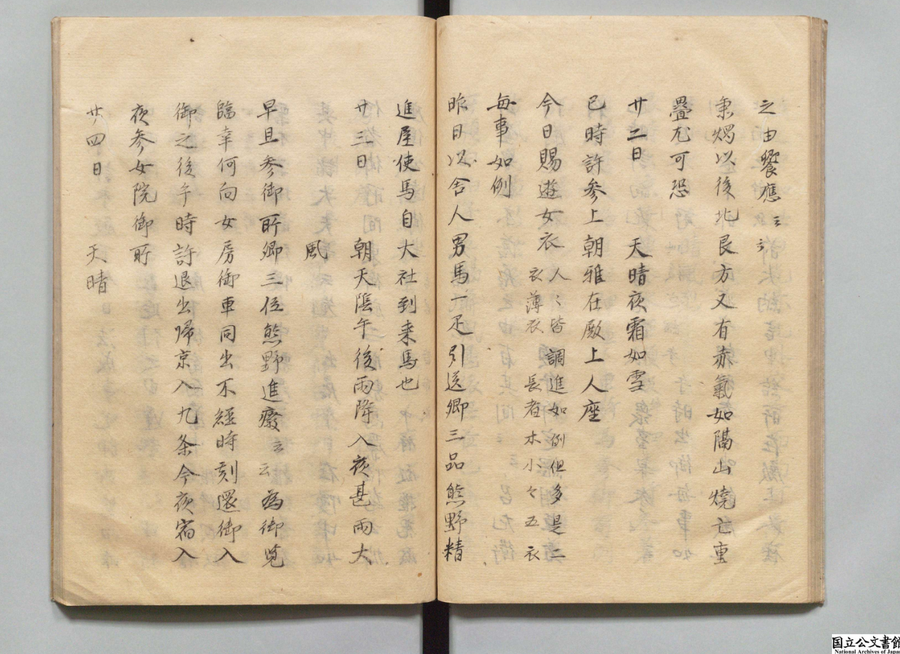 之由饗應云々
秉燭以後北艮方又有赤氣如隔山燒亡重
疊尤可恐
廿二日　天晴夜霜如雪
巳時許参上朝雅在殿上人座
今日賜遊女衣人々皆調進如例但多是二
衣薄衣長者本小々五衣
毎事如例
昨日以舎人男馬一疋引送卿三品熊野精
進屋使馬自大社到来馬也
廿三日　朝天陰午後雨降入夜甚雨大
風
早旦参御所卿三位熊野進癈云云為御覧
臨幸何向女房御車同出不經時刻還御入
御之後午時許退出帰京入九条今夜宿入
夜参女院御所
廿四日　天晴
国立公文書館
National Archives of Japan